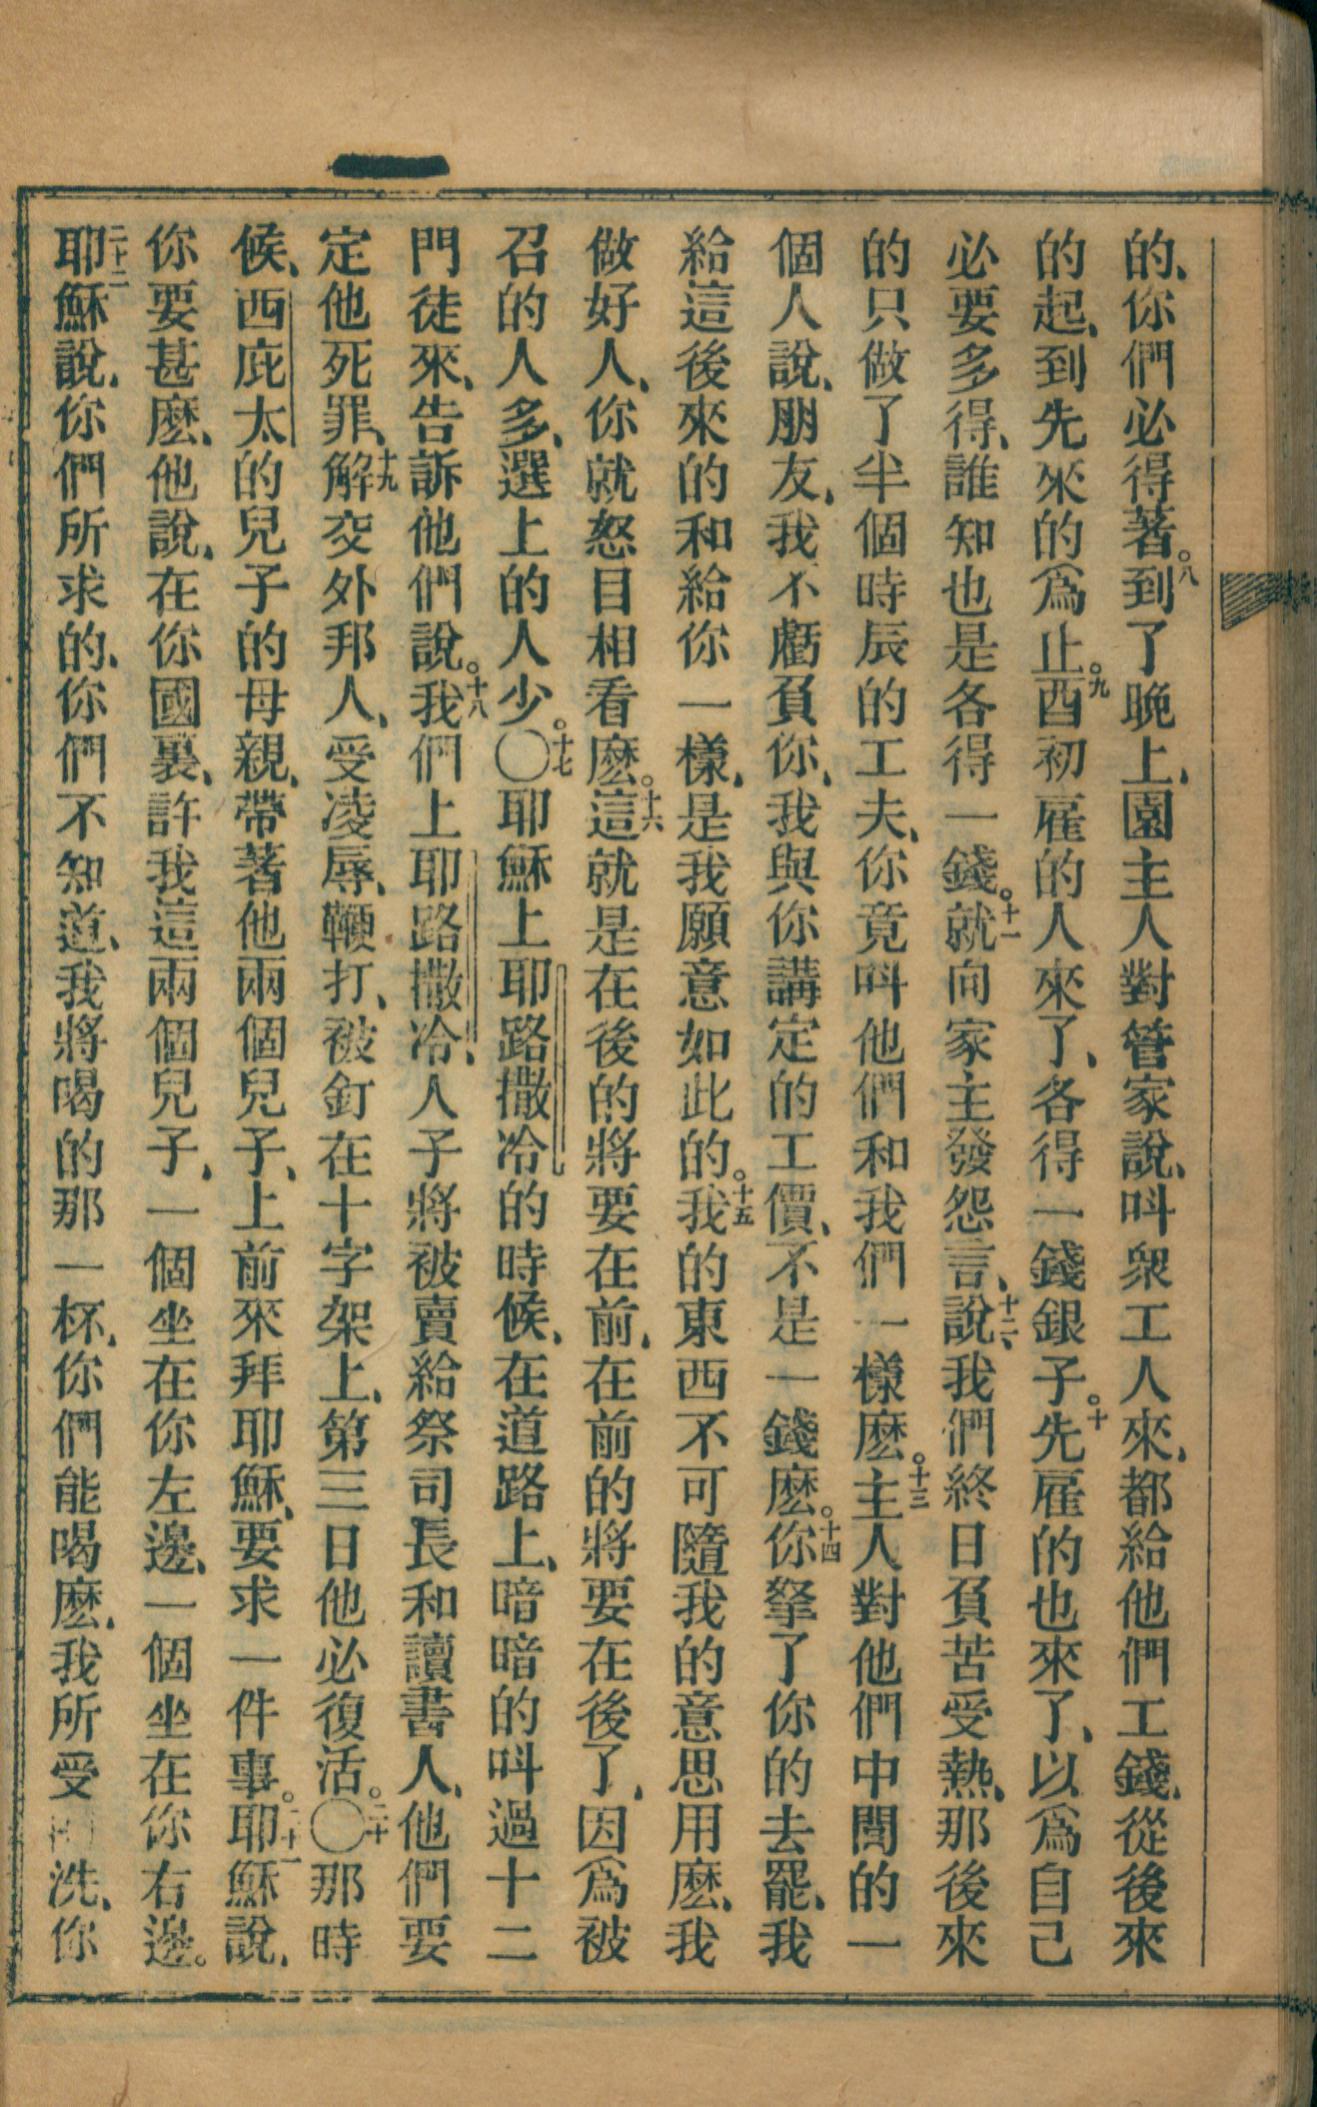 的、你們必得著。八到了晚上、園主人對管家說、呌衆工人來、都給他們工錢、從後來
的起、到先來的爲止。九酉初雇的人來了、各得一錢銀子。十先雇的也來了、以爲自己
必要多得、誰知也是各得一錢。十一就向家主發怨言、十二說、我們終日負苦受熱、那後來
的只做了半個時辰的工夫、你竟呌他們和我們一樣麽。十三主人對他們中間的一
個人說、朋友、我不虧負你、我與你講定的工價、不是一錢麽。十四你拏了你的去罷、我
給這後來的和給你一樣、是我願意如此的。十五我的東西不可隨我的意思用麽、我
做好人、你就怒目相看麽。十六這就是在後的將要在前、在前的將要在後了、因爲被
召的人多、選上的人少。〇十七耶穌上耶路撒冷的時候、在道路上、暗暗的呌過十二
門徒來、告訴他們說。十八我們上耶路撒冷、人子將被賣給祭司長和讀書人、他們要
定他死罪、十九解交外邦人、受凌辱、鞭打、被釘在十字架上、第三日他必復活。〇二十那時
候、西庇太的兒子的母親、帶著他兩個兒子、上前來拜耶穌、要求一件事。二十一耶穌說、
你要甚麽、他說、在你國裏、許我這兩個兒子、一個坐在你左邊、一個坐在你右邊。
二十二耶穌說、你們所求的、你們不知道、我將喝的那一杯、你們能喝麽、我所受洗、你